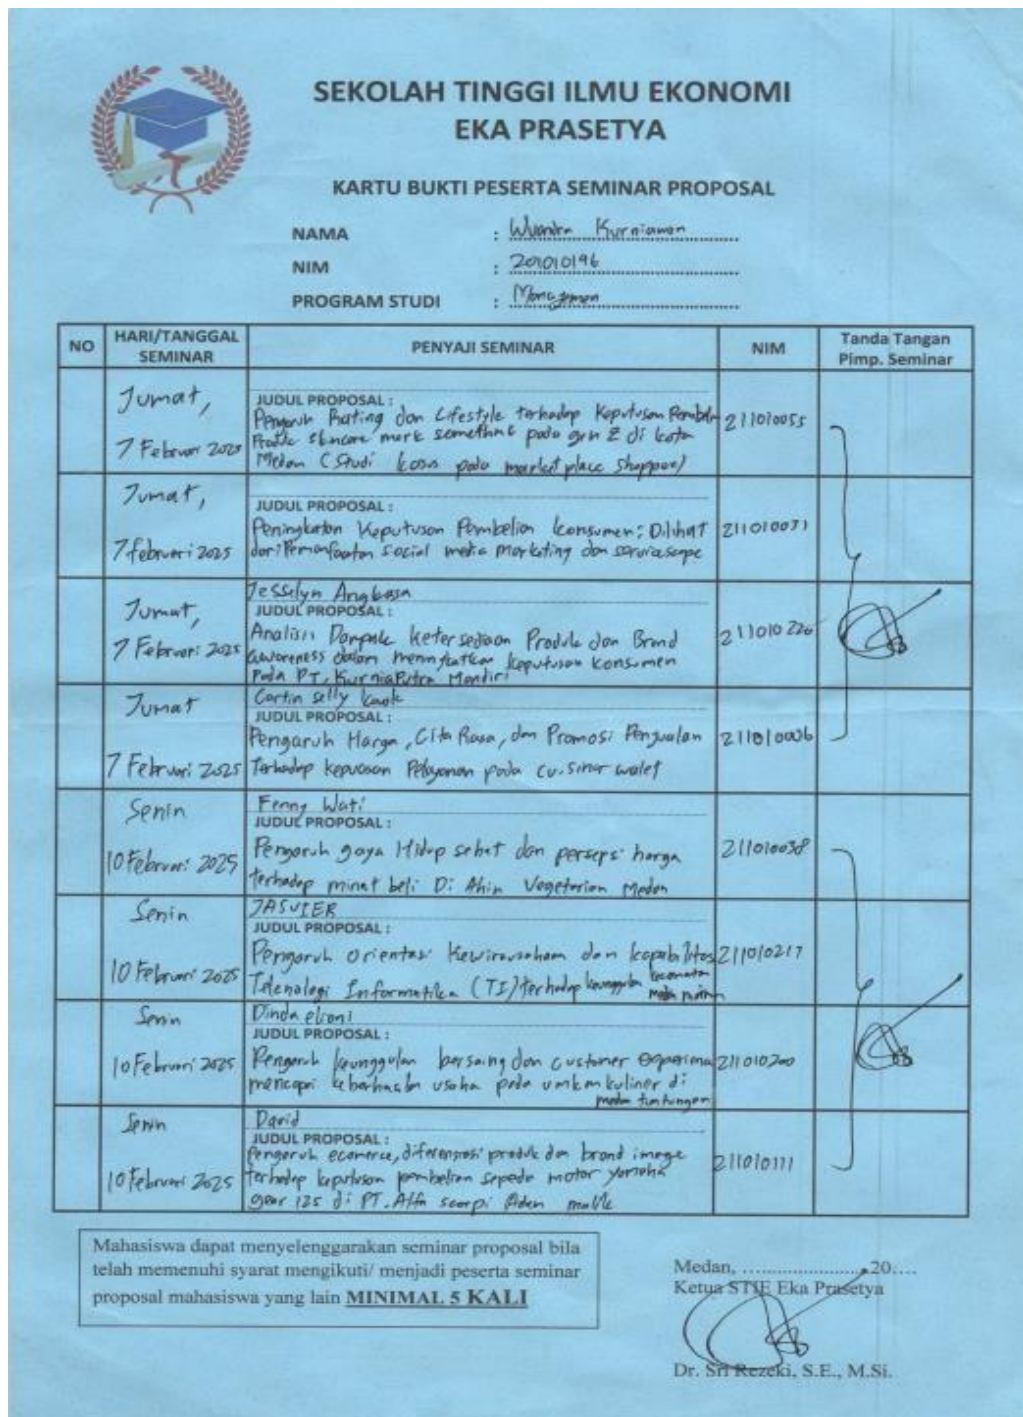 SEKOLAH TINGGI ILMU EKONOMI
EKA PRASETYA
KARTU BUKTI PESERTA SEMINAR PROPOSAL
NAMA : Kurniawan
NIM : 201010196
PROGRAM STUDI : Manajemen
NO HARI/TANGGAL SEMINAR PENYAJI SEMINAR NIM Tanda Tangan Pimp. Seminar
Jumat,
7 Februari 2025
JUDUL PROPOSAL :
Pengaruh Rating dan Lifestyle terhadap Keputusan
skincare merk pada gen Z di kota
Medan (Studi kasus pada marketplace
211010055
Jumat,
7 februari 2025
JUDUL PROPOSAL :
Peningkatan Keputusan Pembelian Konsumen: Dilihat
dari Pemanfaatan social media Marketing dan
211010031
Jumat,
7 Februari 2025
Jesselyn Angkasa
JUDUL PROPOSAL :
Analisis Dampak Ketersediaan Produk dan Brand
awareness dalam meningkatkan keputusan konsumen
Pada PT. Kurnia Putra Mandiri
211010226
Jumat
7 Februari 2025
selly
JUDUL PROPOSAL :
Pengaruh Harga, Cita Rasa, dan Promosi Penjualan
Terhadap Pelayanan pada cv. Sinar walet
Senin
10 Februari 2025
Fenny Wati
JUDUL PROPOSAL :
Pengaruh gaya Hidup sehat dan persepsi harga
terhadap minat beli Di Ahin Vegetarian Medan
211010038
Senin
10 Februari 2025
JASVIER
JUDUL PROPOSAL :
Pengaruh orientasi Kewirausahaan dan kapabilitas
Teknologi Informatika (TI) terhadap
211010217
Senin
10 Februari 2025
Dinda
JUDUL PROPOSAL :
Pengaruh keunggulan bersaing dan customer
keberhasilan usaha pada kuliner di
211010200
Senin
10 Februari 2025
David
JUDUL PROPOSAL :
Pengaruh produk dan brand image
terhadap keputusan pembelian sepeda motor yamaha
gear 125 di PT. Alfa scorpi
211010111
Mahasiswa dapat menyelenggarakan seminar proposal bila
telah memenuhi syarat mengikuti/ menjadi peserta seminar
proposal mahasiswa yang lain MINIMAL 5 KALI
Medan, ........................20....
Ketua STIE Eka Prasetya
Dr. Sri Rezeki, S.E., M.Si.